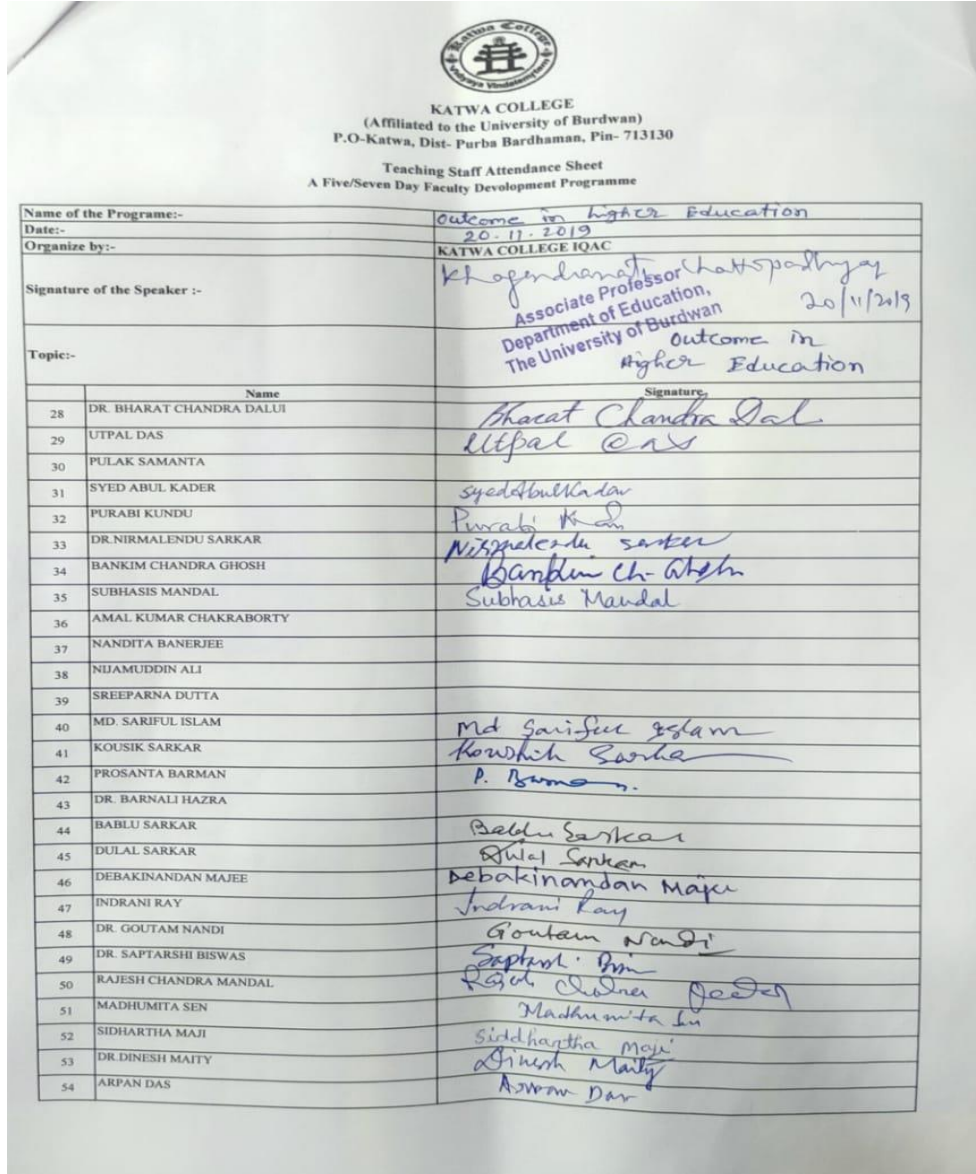 Katwa College
Vidyaya Vindatemrtam
KATWA COLLEGE
(Affiliated to the University of Burdwan)
P.O-Katwa, Dist- Purba Bardhaman, Pin- 713130
Teaching Staff Attendance Sheet
A Five/Seven Day Faculty Devolopment Programme
Name of the Programe:- Outcome in higher Education
Date:- 20.11.2019
Organize by:- KATWA COLLEGE IQAC
Signature of the Speaker :- Khagendranath Chattopadhyay
20/11/2019
Associate Professor
Department of Education,
The University of Burdwan
Topic:- Outcome in
Higher Education
Name Signature
28 DR. BHARAT CHANDRA DALUI Bharat Chandra Dal
29 UTPAL DAS Utpal Das
30 PULAK SAMANTA
31 SYED ABUL KADER Syed Abul Kadar
32 PURABI KUNDU Purabi
33 DR.NIRMALENDU SARKAR Nirmalendu Sarker
34 BANKIM CHANDRA GHOSH Bankim Ch- Ghosh
35 SUBHASIS MANDAL Subhasis Mandal
36 AMAL KUMAR CHAKRABORTY
37 NANDITA BANERJEE
38 NIJAMUDDIN ALI
39 SREEPARNA DUTTA
40 MD. SARIFUL ISLAM Md Sariful Islam
41 KOUSIK SARKAR Koushik Sarkar
42 PROSANTA BARMAN P. Barman.
43 DR. BARNALI HAZRA
44 BABLU SARKAR Bablu Sarkar
45 DULAL SARKAR Dulal Sarkar
46 DEBAKINANDAN MAJEE Debakinandan Majee
47 INDRANI RAY Indrani Ray
48 DR. GOUTAM NANDI Goutam Nandi
49 DR. SAPTARSHI BISWAS Saptarsh.
50 RAJESH CHANDRA MANDAL
51 MADHUMITA SEN Madhumita Sen
52 SIDHARTHA MAJI Siddhartha Maji
53 DR.DINESH MAITY Dinesh Maity
54 ARPAN DAS Arpan Das